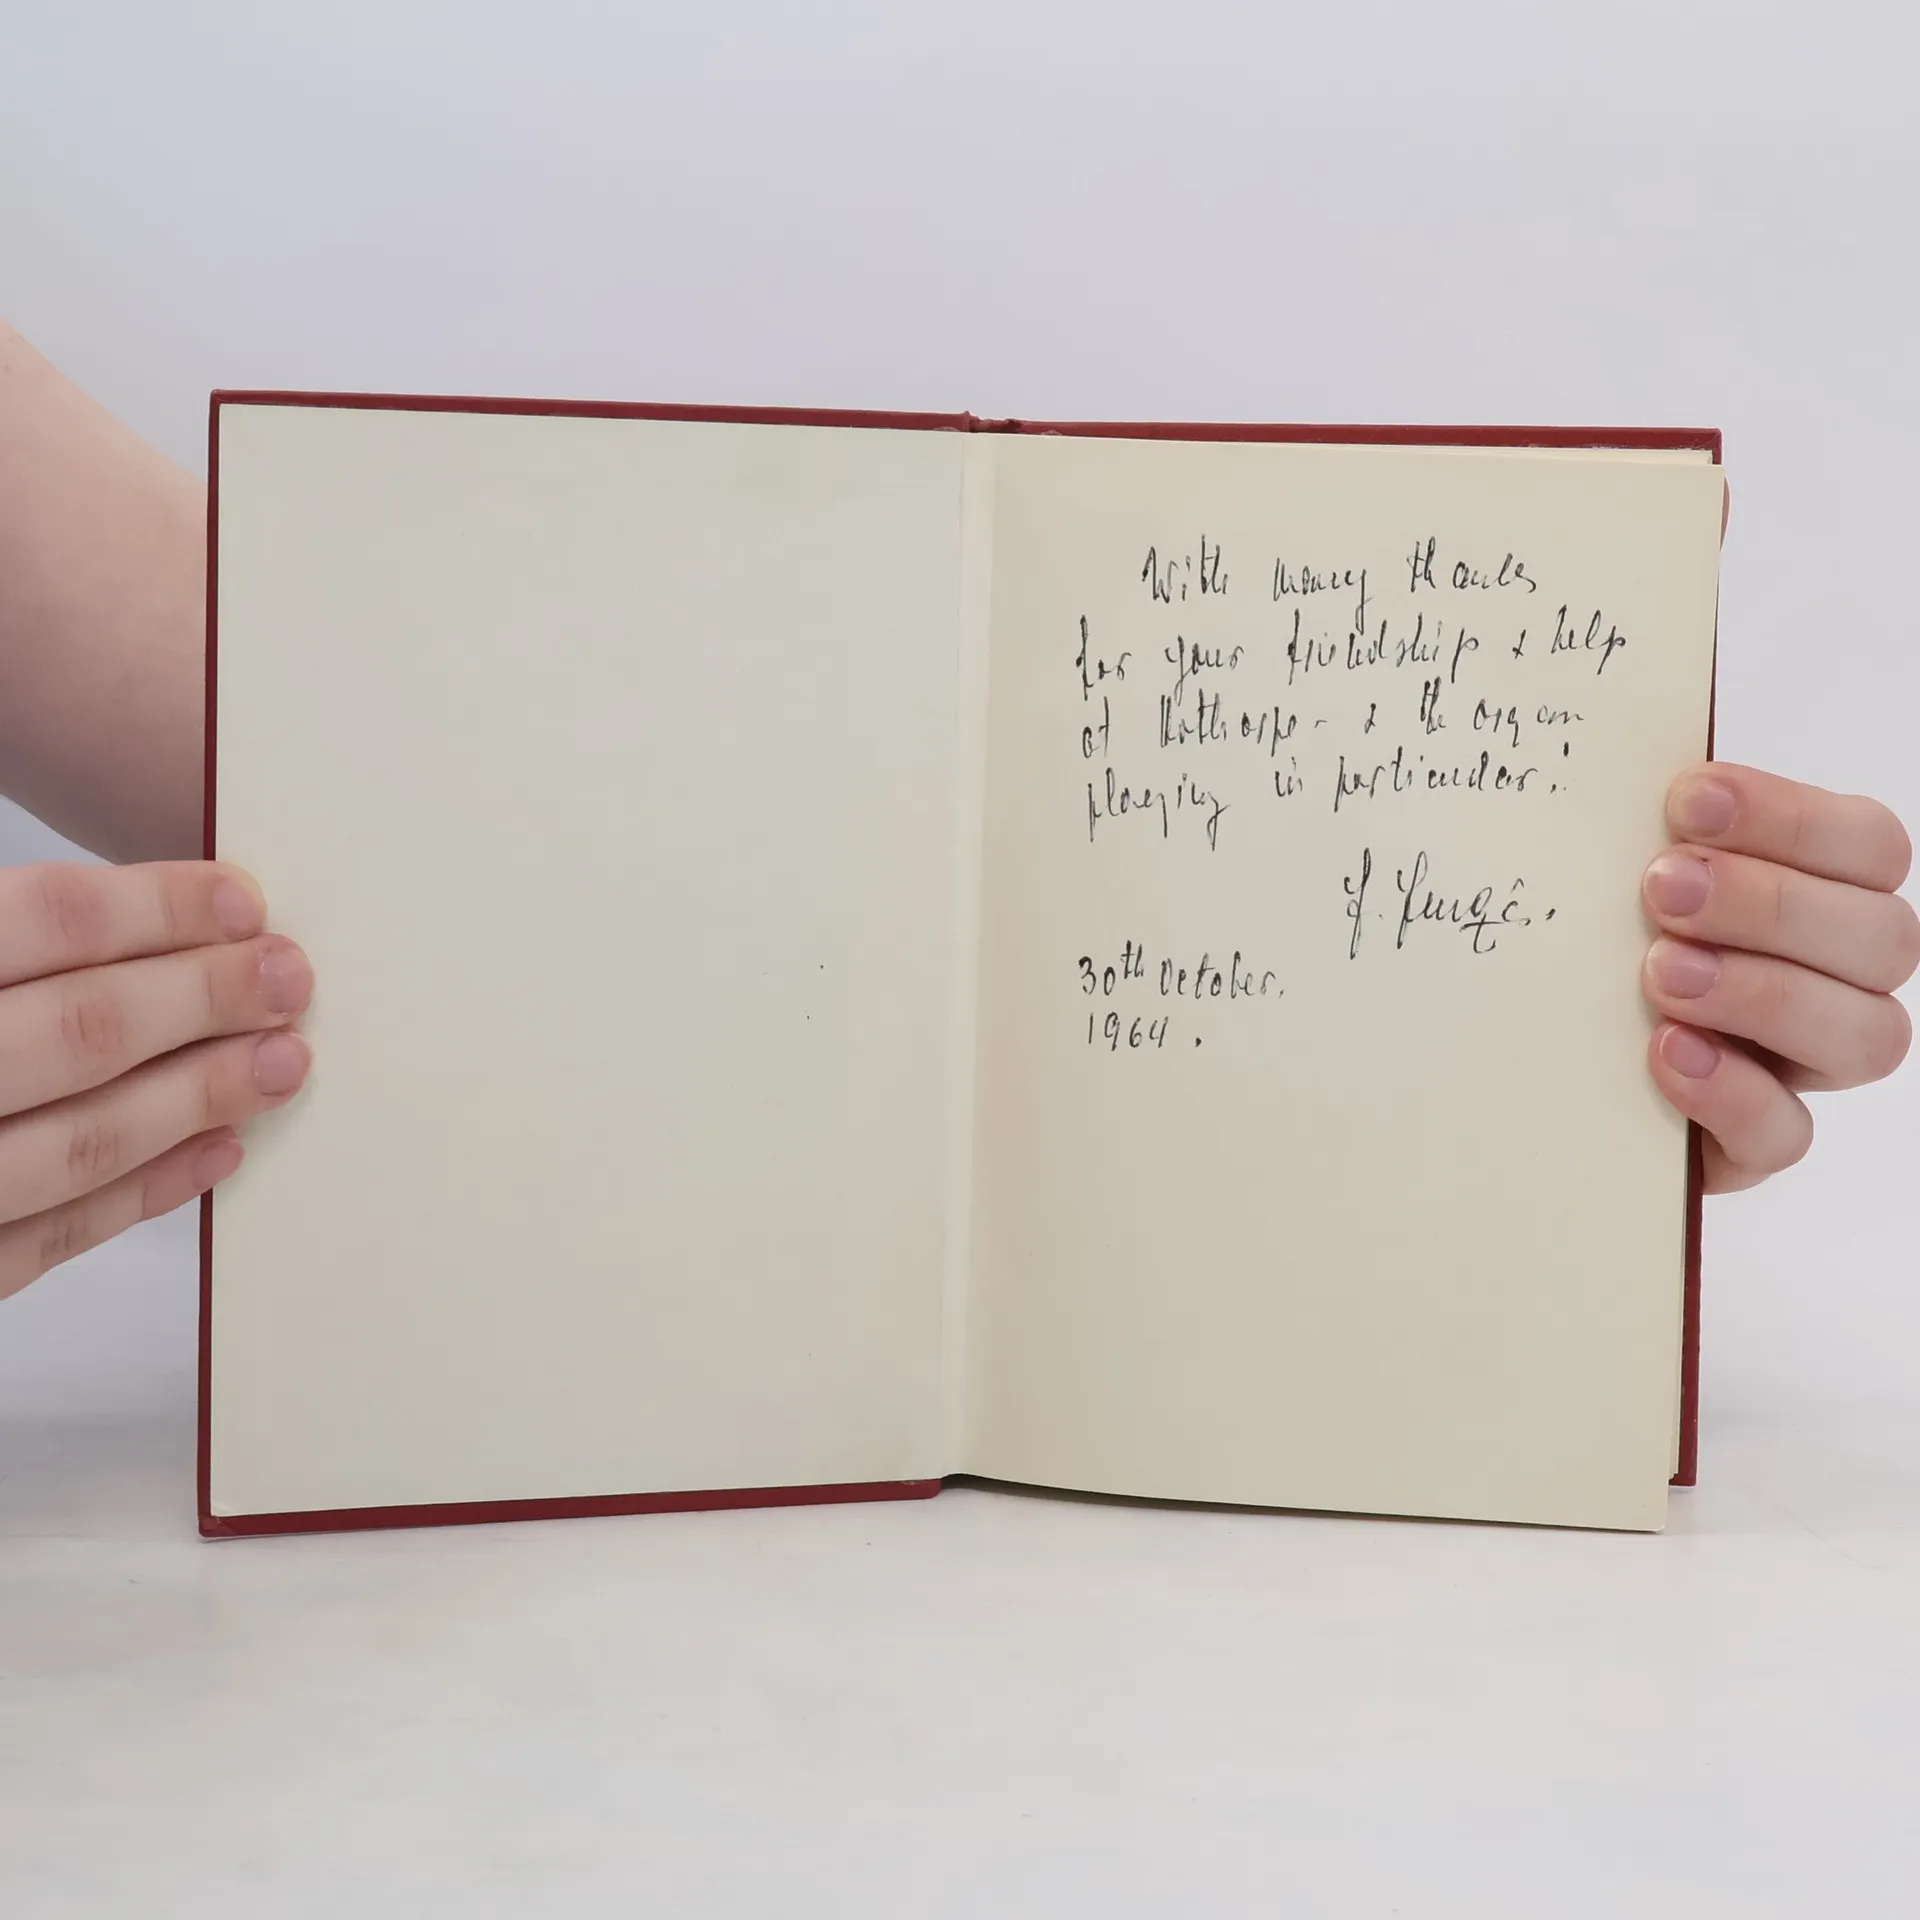 With many thanks
for your friendship & help
at & the organ
playing in particular.!
30th October.
1964.